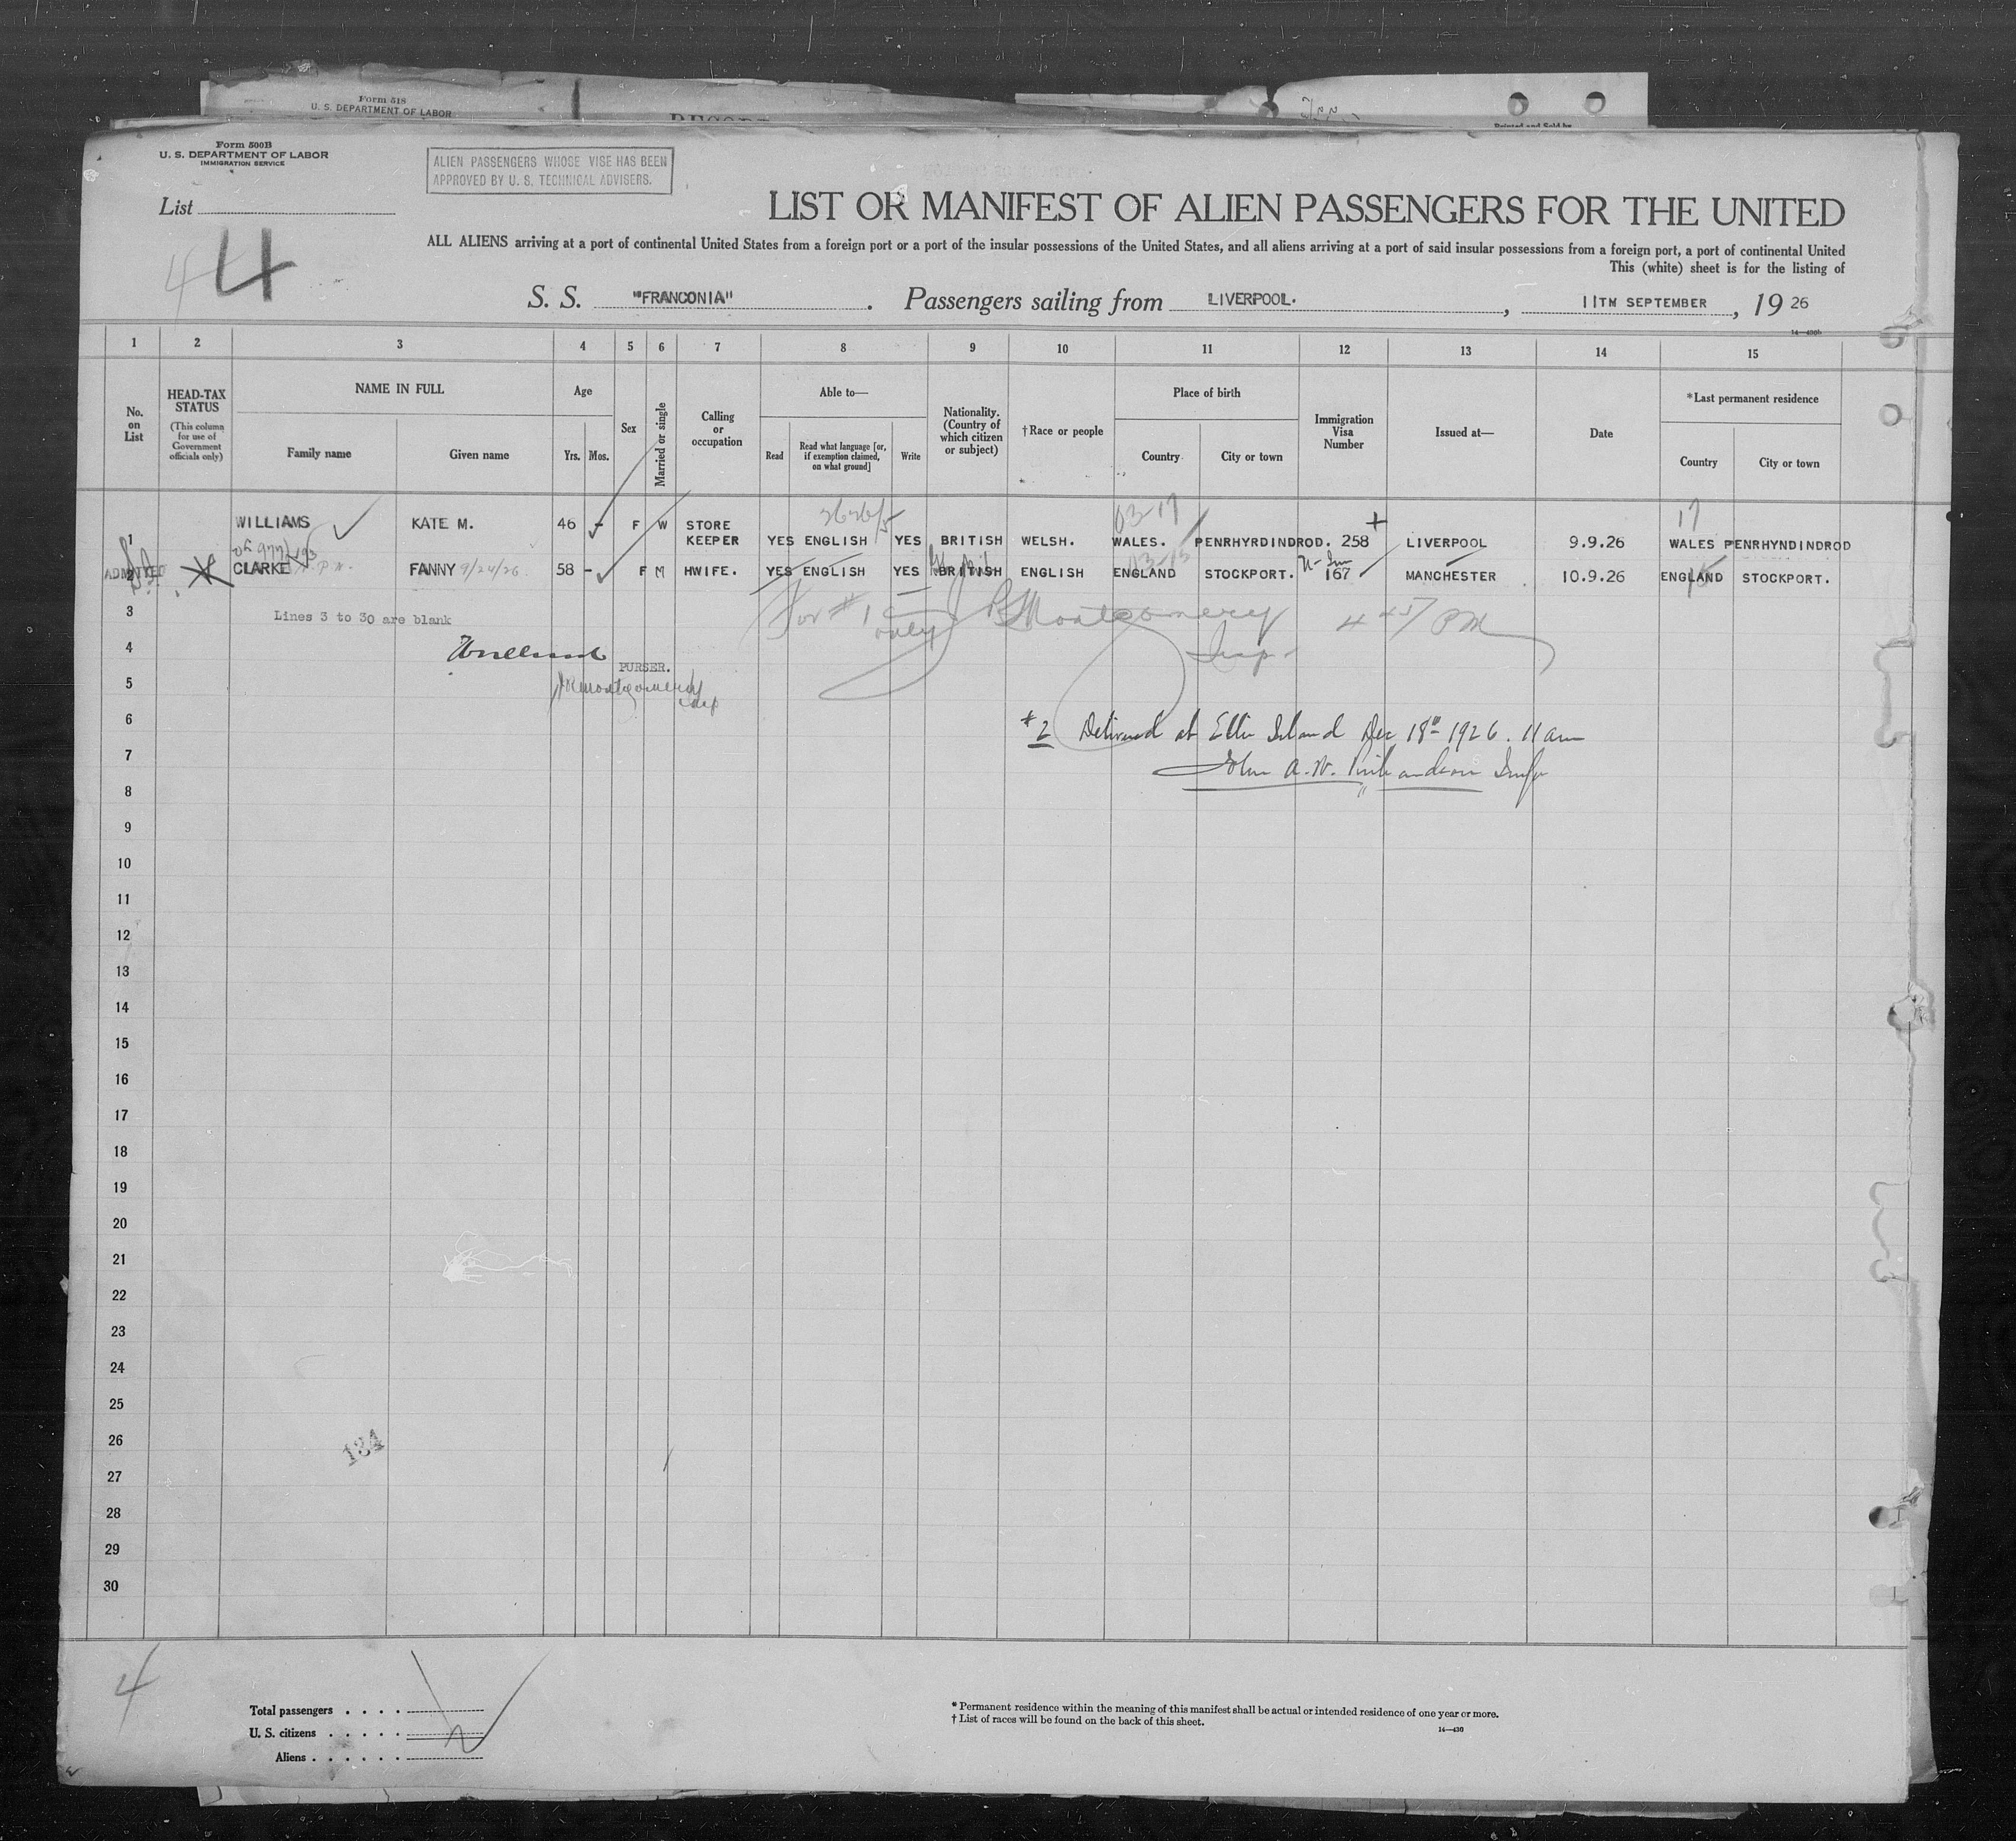 Form 518
U. S. DEPARTMENT OF LABOR
Printed and Sold by
Form 500B
U. S. DEPARTMENT OF LABOR
IMMIGRATION SERVICE
ALIEN PASSENGERS WHOSE VISE HAS BEEN
APPROVED BY U. S. TECHNICAL ADVISERS.
List
4 4
LIST OR MANIFEST OF ALIEN PASSENGERS FOR THE UNITED
ALL ALIENS arriving at a port of continental United States from a foreign port or a port of the insular possessions of the United States, and all aliens arriving at a port of said insular possessions from a foreign port, a port of continental United
This (white) sheet is for the listing of
S. S. "FRANCONIA". Passengers sailing from LIVERPOOL., 11TH SEPTEMBER, 19 26
1 2 3 4 5 6 7 8 9 10 11 12 13 14 15
No. on List
HEAD-TAX STATUS
(This column for use of Government officials only)
NAME IN FULL
Family name
Given name
Age
Yrs. Mos.
Sex
Married or single
Calling or occupation
Able to—
Read
Read what language [or, if exemption claimed, on what ground]
Write
Nationality. (Country of which citizen or subject)
†Race or people
Place of birth
Country
City or town
Immigration Visa Number
Issued at—
Date
*Last permanent residence
Country
City or town
03-17 17
1 WILLIAMS KATE M. 46 - F W STORE KEEPER YES ENGLISH YES BRITISH WELSH. WALES. PENRHYRDINDROD. 258 LIVERPOOL 9.9.26 WALES PENRHYNDINDROD
ADMITTED 2 CLARKE FANNY 9/24/26 58 - F M HWIFE. YES ENGLISH YES BRITISH ENGLISH ENGLAND STOCKPORT. 167 MANCHESTER 10.9.26 ENGLAND STOCKPORT.
3 Lines 3 to 30 are blank
For # 1 only Montgomery 4 45/ PM
Insp.
4
PURSER.
5 Montgomery
Insp
6
#2 Delivered at Ellis Island Dec 18th 1926. 11 am
7
John A. W. Insp
8
9
10
11
12
13
14
15
16
17
18
19
20
21
22
23
24
25
26
134
27
28
29
30
4
Total passengers
U. S. citizens
Aliens
* Permanent residence within the meaning of this manifest shall be actual or intended residence of one year or more.
† List of races will be found on the back of this sheet.
14—430